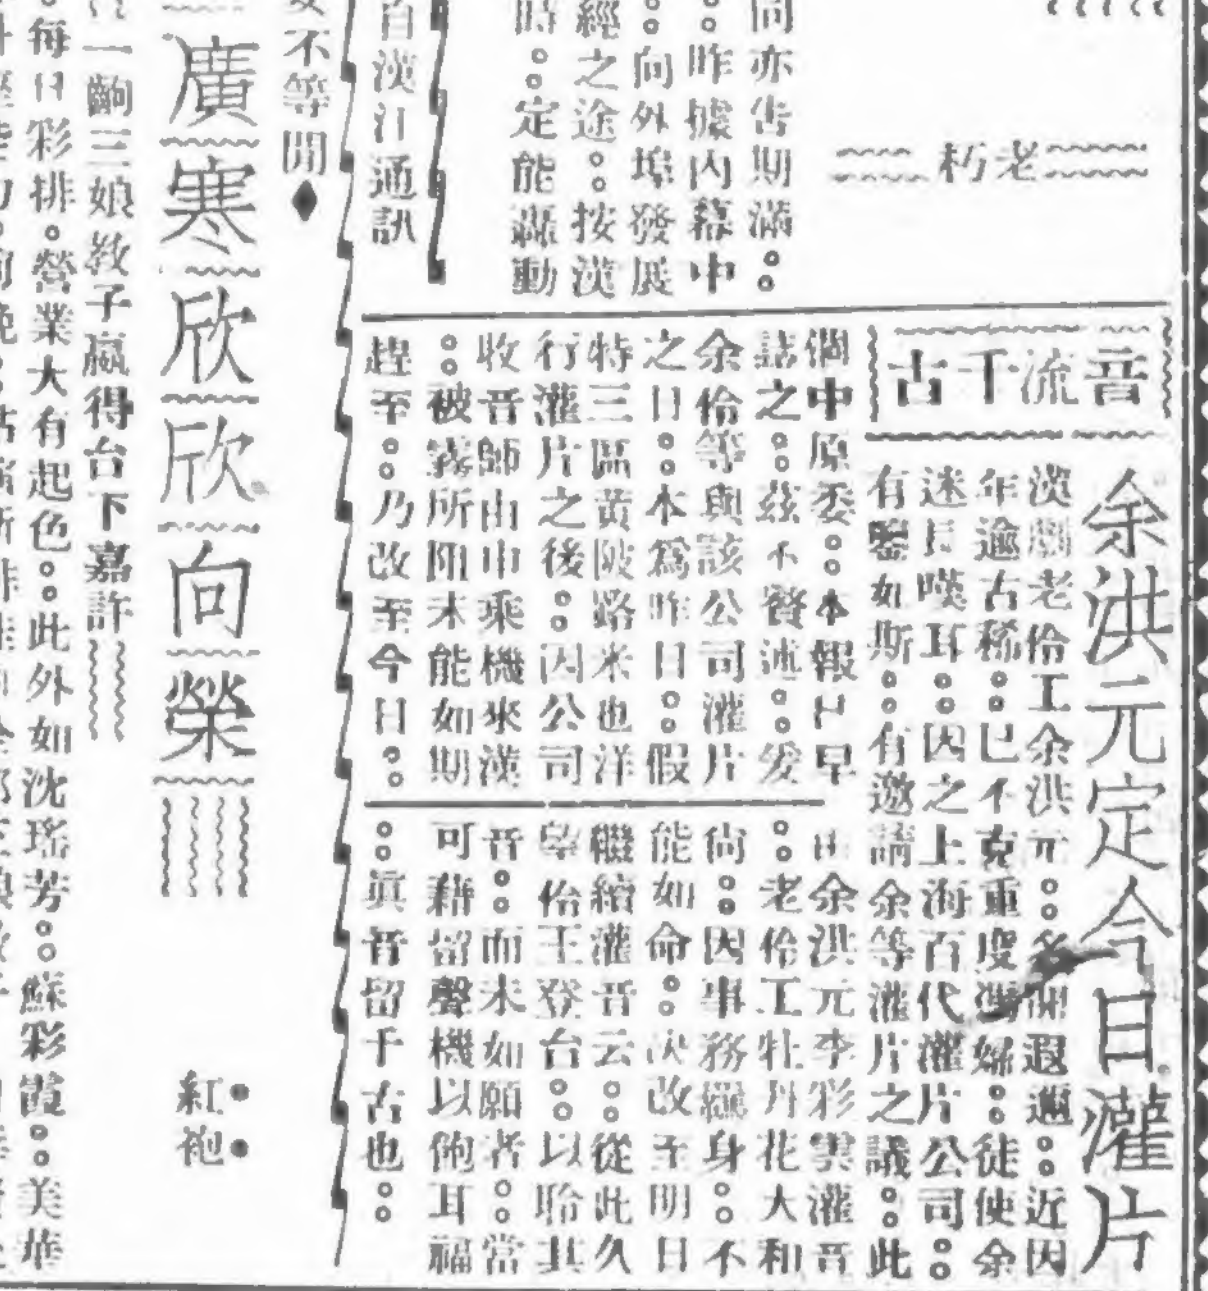 同亦告期滿。。
。。昨據內幕中
。。向外埠發展
經之途。。按漢
時。。定能轟動
老朽
自漢江通訊
音流千古
余洪元定今日灌片
漢劇老伶工余洪元。。名聞遐邇。。近因
年逾古稀。。已不克重度馮婦。。徒使余
迷長嘆耳。。因之上海百代灌片公司。。
有鑒如斯。。有邀請余等灌片之議。。此
個中原委。。本報已早
誌之。。茲不贅述。。爰
余伶等與該公司灌片
之日。。本爲昨日。。假
特三區黃陂路米也洋
行灌片之後。。因公司
收音師由申乘機來漢
。。被霧所阻未能如期
趕至。。乃改至今日。。
由余洪元李彩雲灌音
。。老伶工牡丹花大和
尚。。因事務纏身。。不
能如命。。決改至明日
繼續灌音云。。從此久
望伶王登台。。以聆其
音。。而未如願者。。當
可藉留聲機以飽耳福
。。眞音留千古也。。
不等閒◆
廣寒欣欣向榮
紅袍
一齣三娘教子贏得台下嘉許
。每日彩排。營業大有起色。。此外如沈瑤芳。。蘇彩霞。。美華